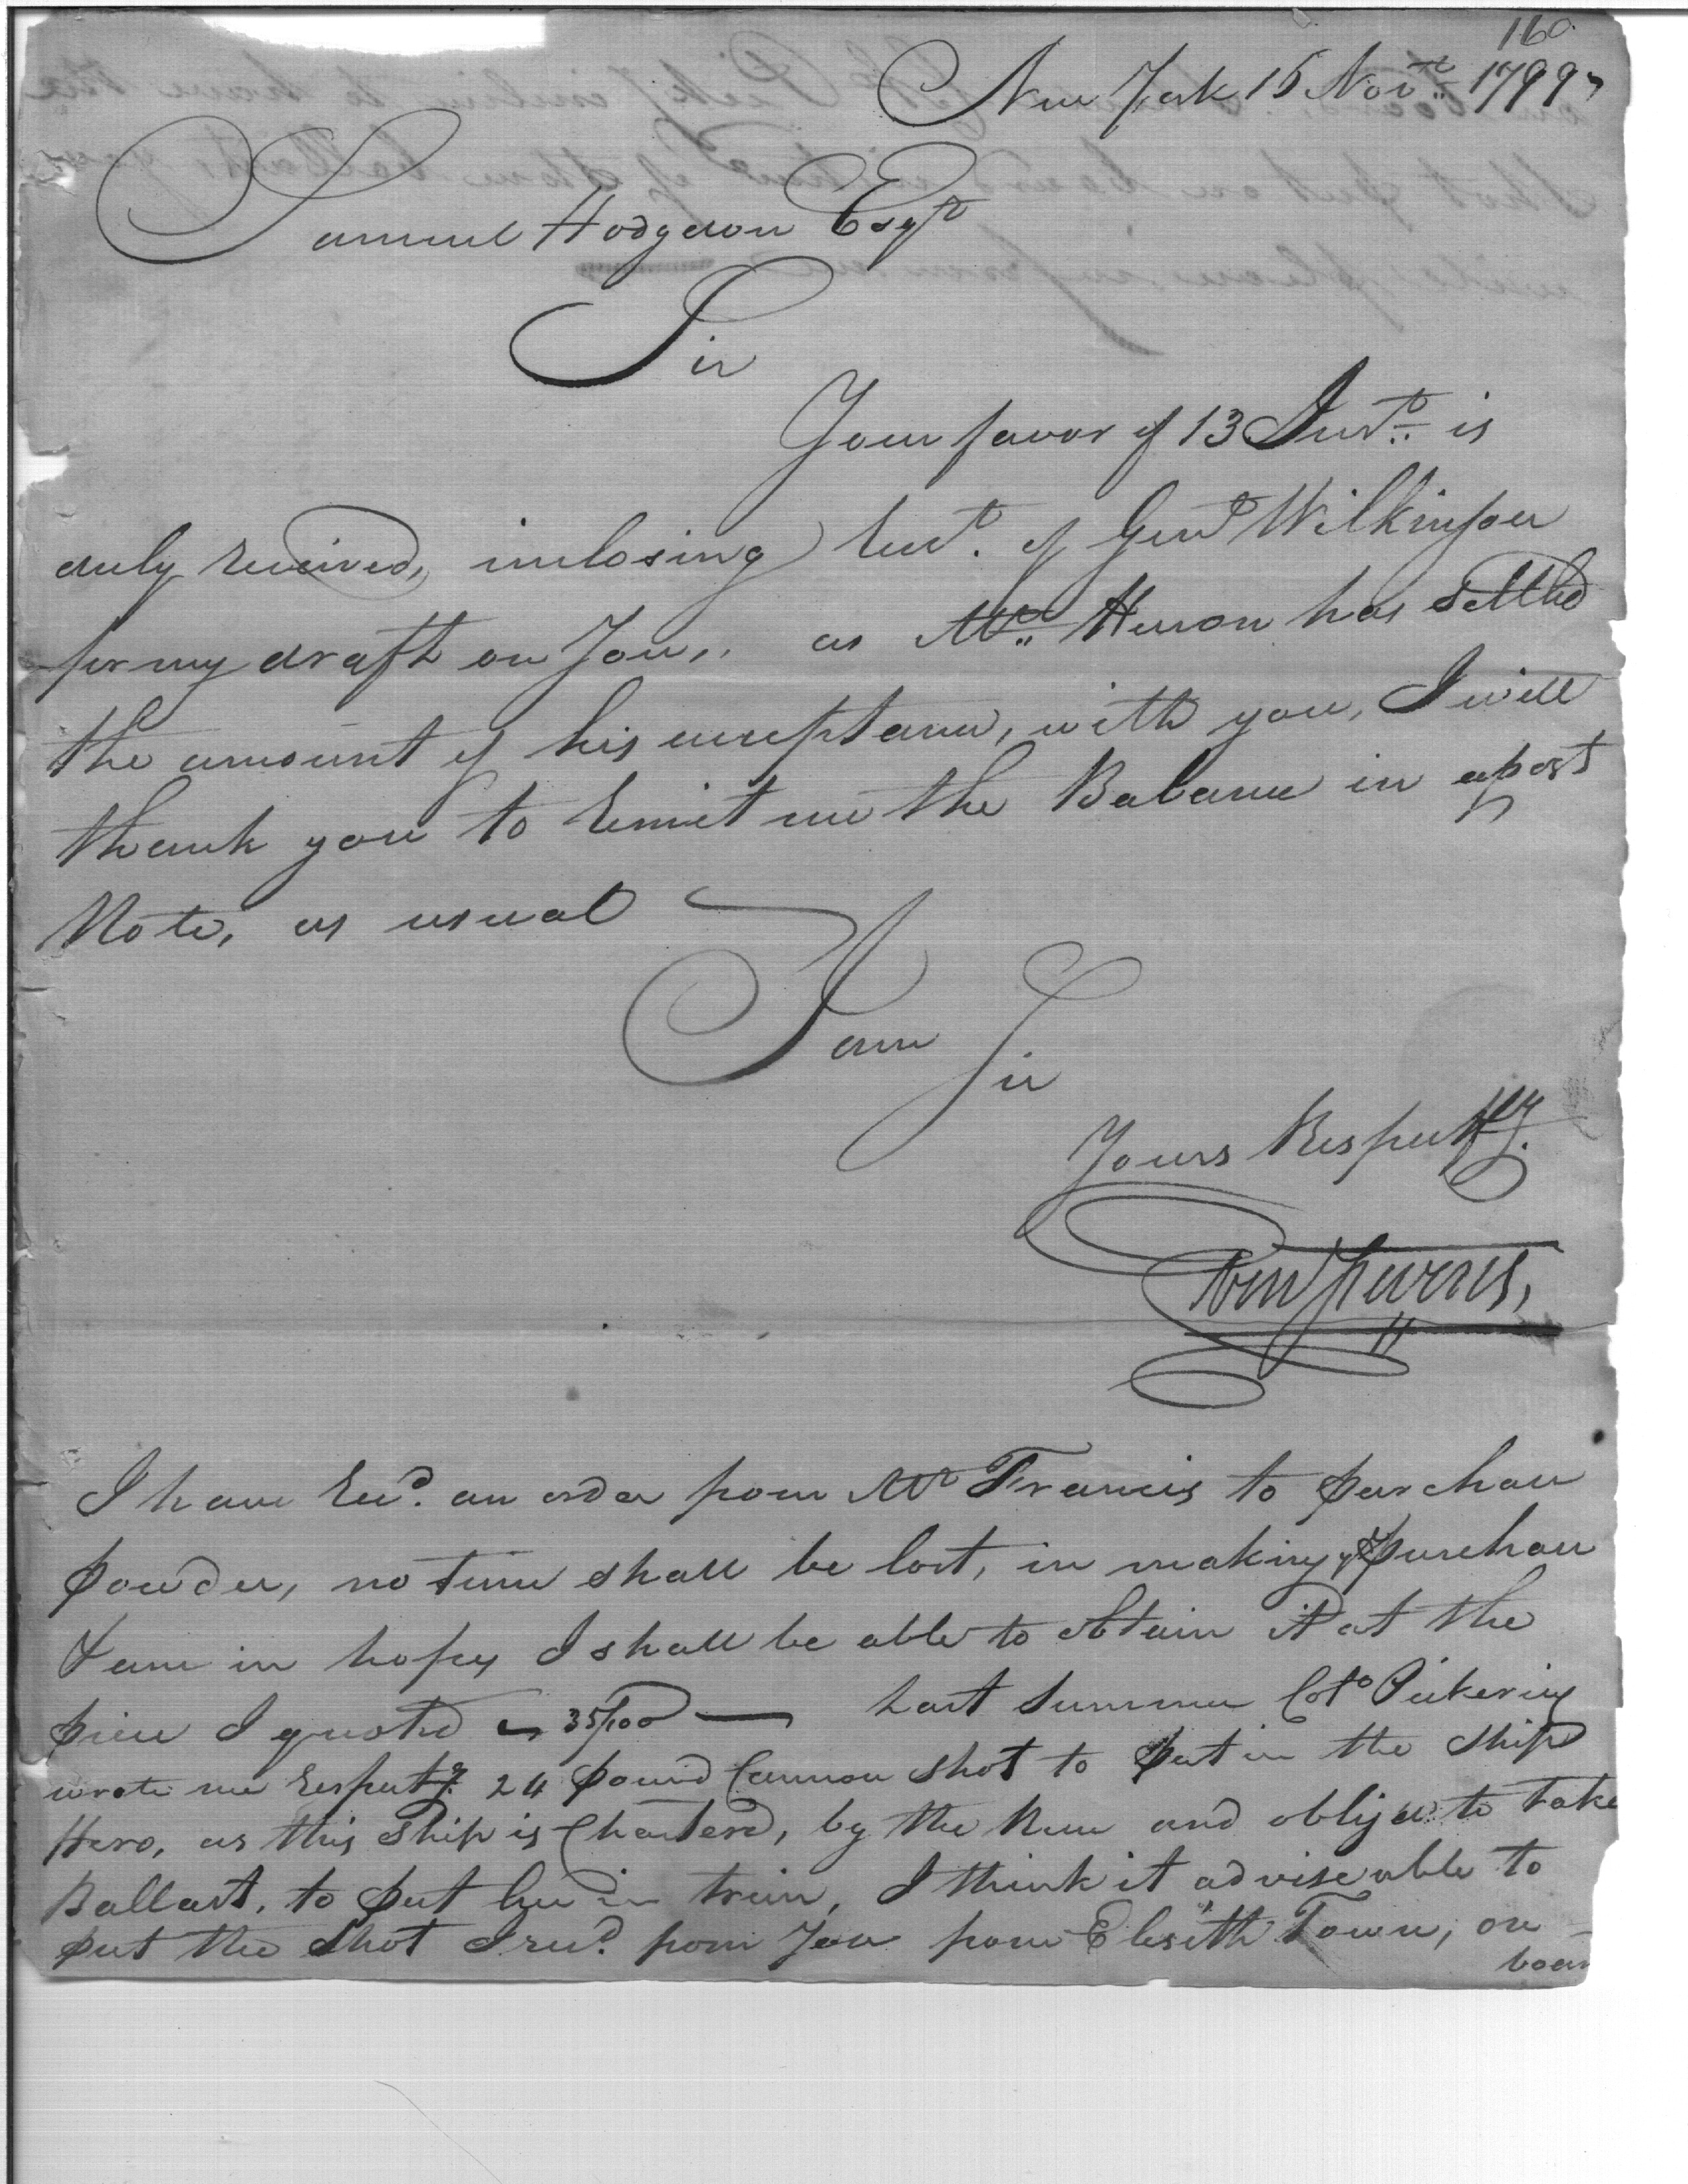 160.
New York 15 Novr. 1799
Samuel Hodgdon Esqr
Sir
Your favor of 13 Inst. is
duly received, inclosing rect. of Genl Wilkinson
for my draft on You,. as Mr. Heron has settled
the amount of his acceptance, with you, I will
thank you to remit me the Balance in a post
Note, as usual
I am
Sir
Yours Respectfly.
I have recd. an order from Mr Francis to purchase
powder, no time shall be lost, in making ye purchase
& am in hopes I shall be able to obtain it at the
price I quoted 35/100 — Last summer Colo Pickering
wrote me respectg. 24 pound Cannon shot to put in the Ship
Hero, as this Ship is Charterd, by the Run and obliged to take
Ballast, to put her in trim, I think it adviseable to
put the Shot I recd. from You from Elesith Town, on
boar